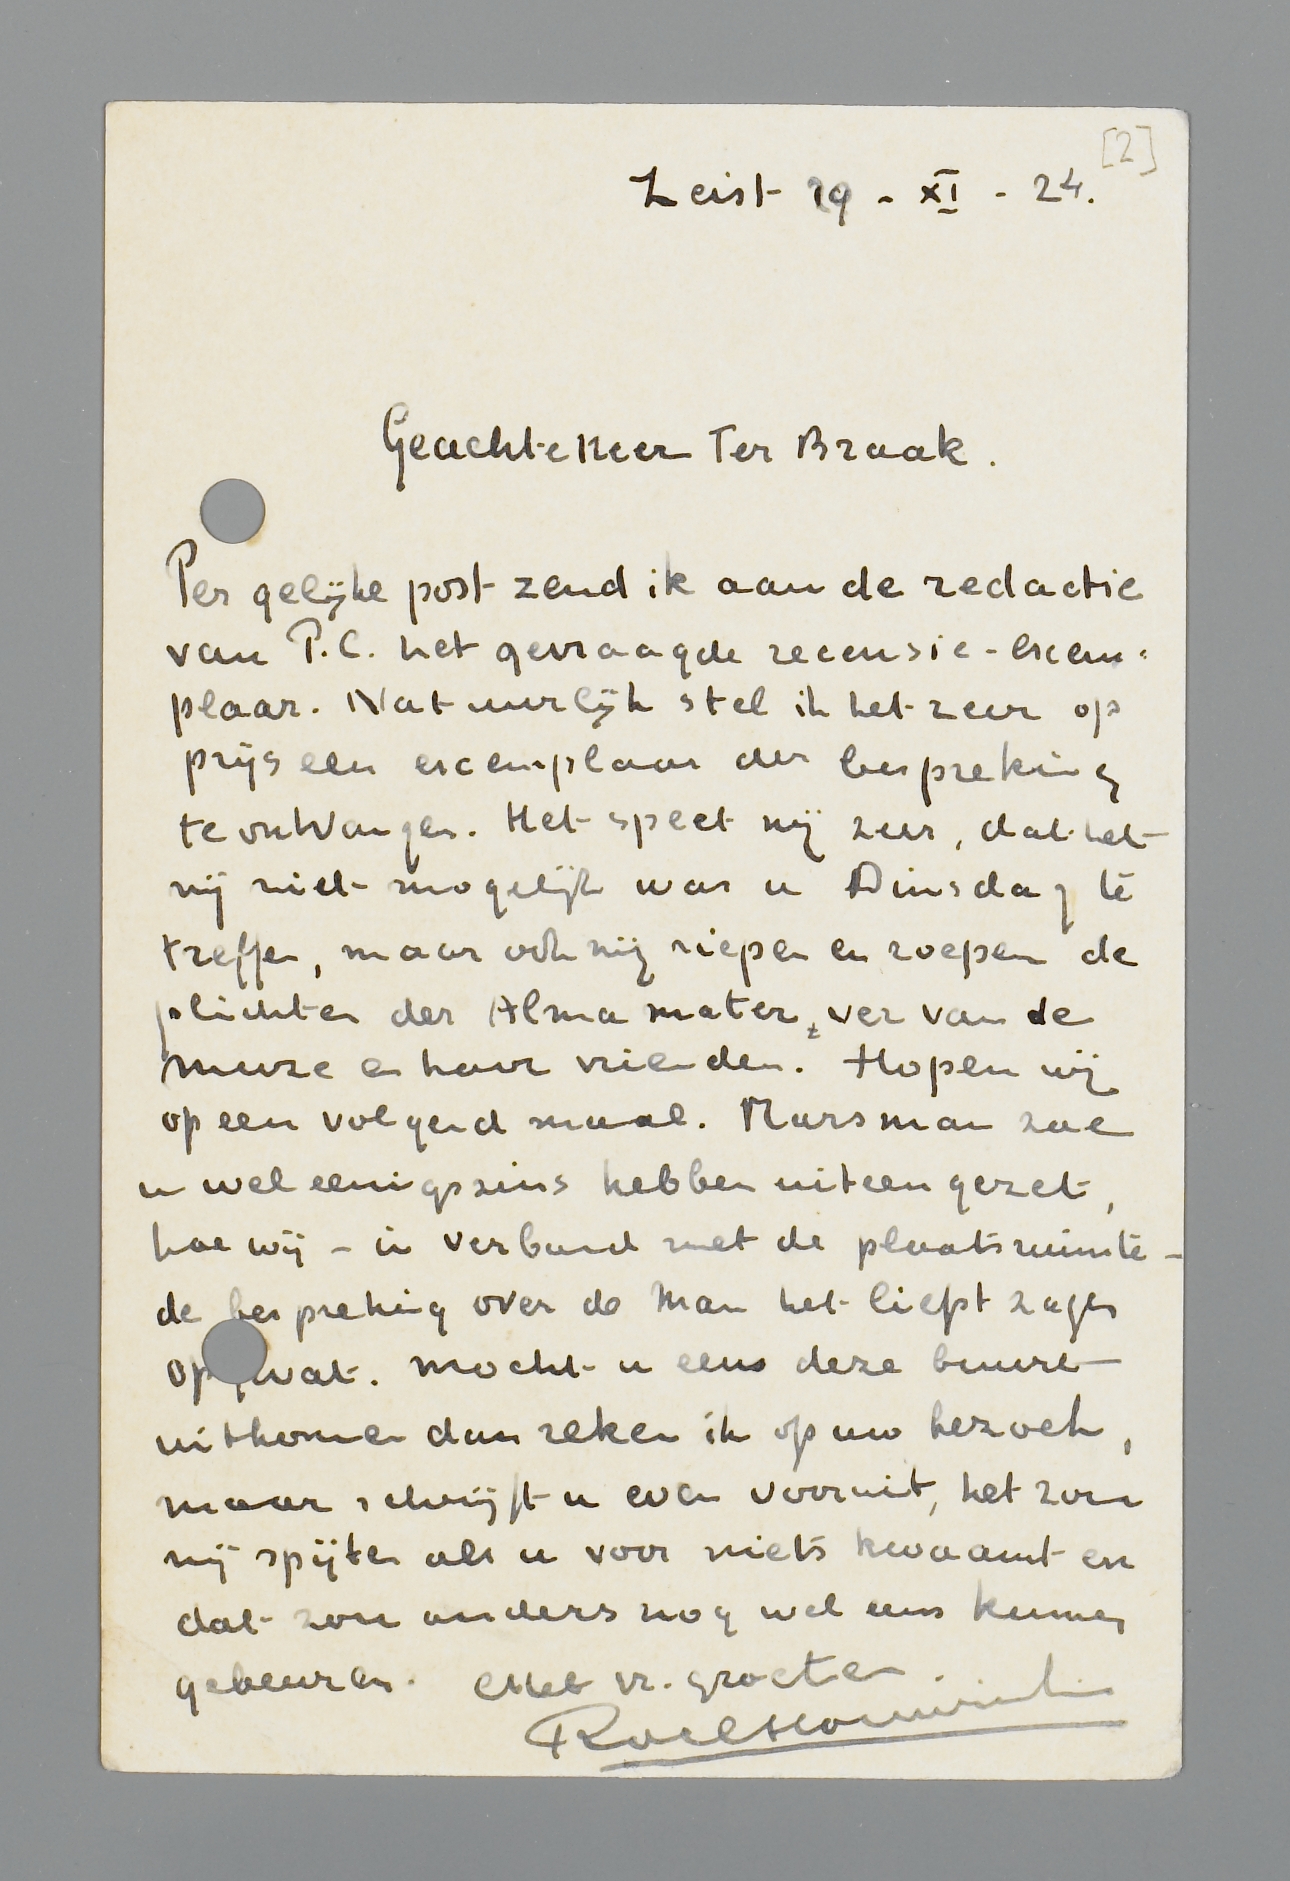 [2]
Zeist 29 - XI - 24.
Geachte Heer Ter Braak.
Per gelijke post zend ik aan de redactie
van P.C. het gevraagde recensie-exem-
plaar. Natuurlijk stel ik het zeer op
prijs een exemplaar der bespreking
te ontvangen. Het speet mij zeer, dat het
mij niet mogelijk was u Dinsdag te
treffen, maar ook mij riepen en roepen de
plichten der Alma mater, ver van de
muze en haar vrienden. Hopen wij
op een volgend maal. Marsman zal
u wel eenigszins hebben uiteengezet,
hoe wij - in verband met de plaatsruimte -
de bespreking over de Man het liefst zagen
opgevat. Mocht u eens deze buurt
uitkomen dan reken ik op uw bezoek,
maar schrijft u even vooruit, het zou
mij spijten als u voor niets kwaamt en
dat zou anders nog wel eens kunnen
gebeuren. Met vr. groeten.
Roel Houwink